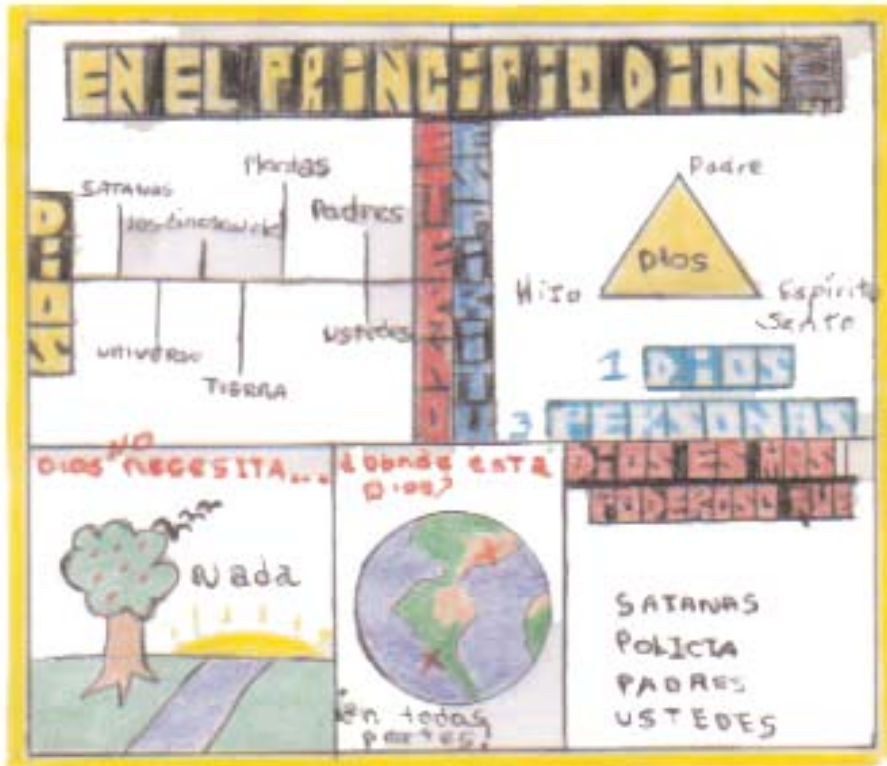 EN EL PRINCIPIO DIOS
DIOS
SATANAS
Plantas
Padres
UNIVERSO
TIERRA
USTEDES
ES ETERNO
ES ESPIRITU
Padre
DIOS
Hijo
Espírito
Santo
1 DIOS
3 PERSONAS
DIOS NO NECESITA...
Nada
¿DONDE ESTÁ
DIOS?
¡En todas
partes!
DIOS ES MAS
PODEROSO QUE
SATANAS
POLICIA
PADRES
USTEDES